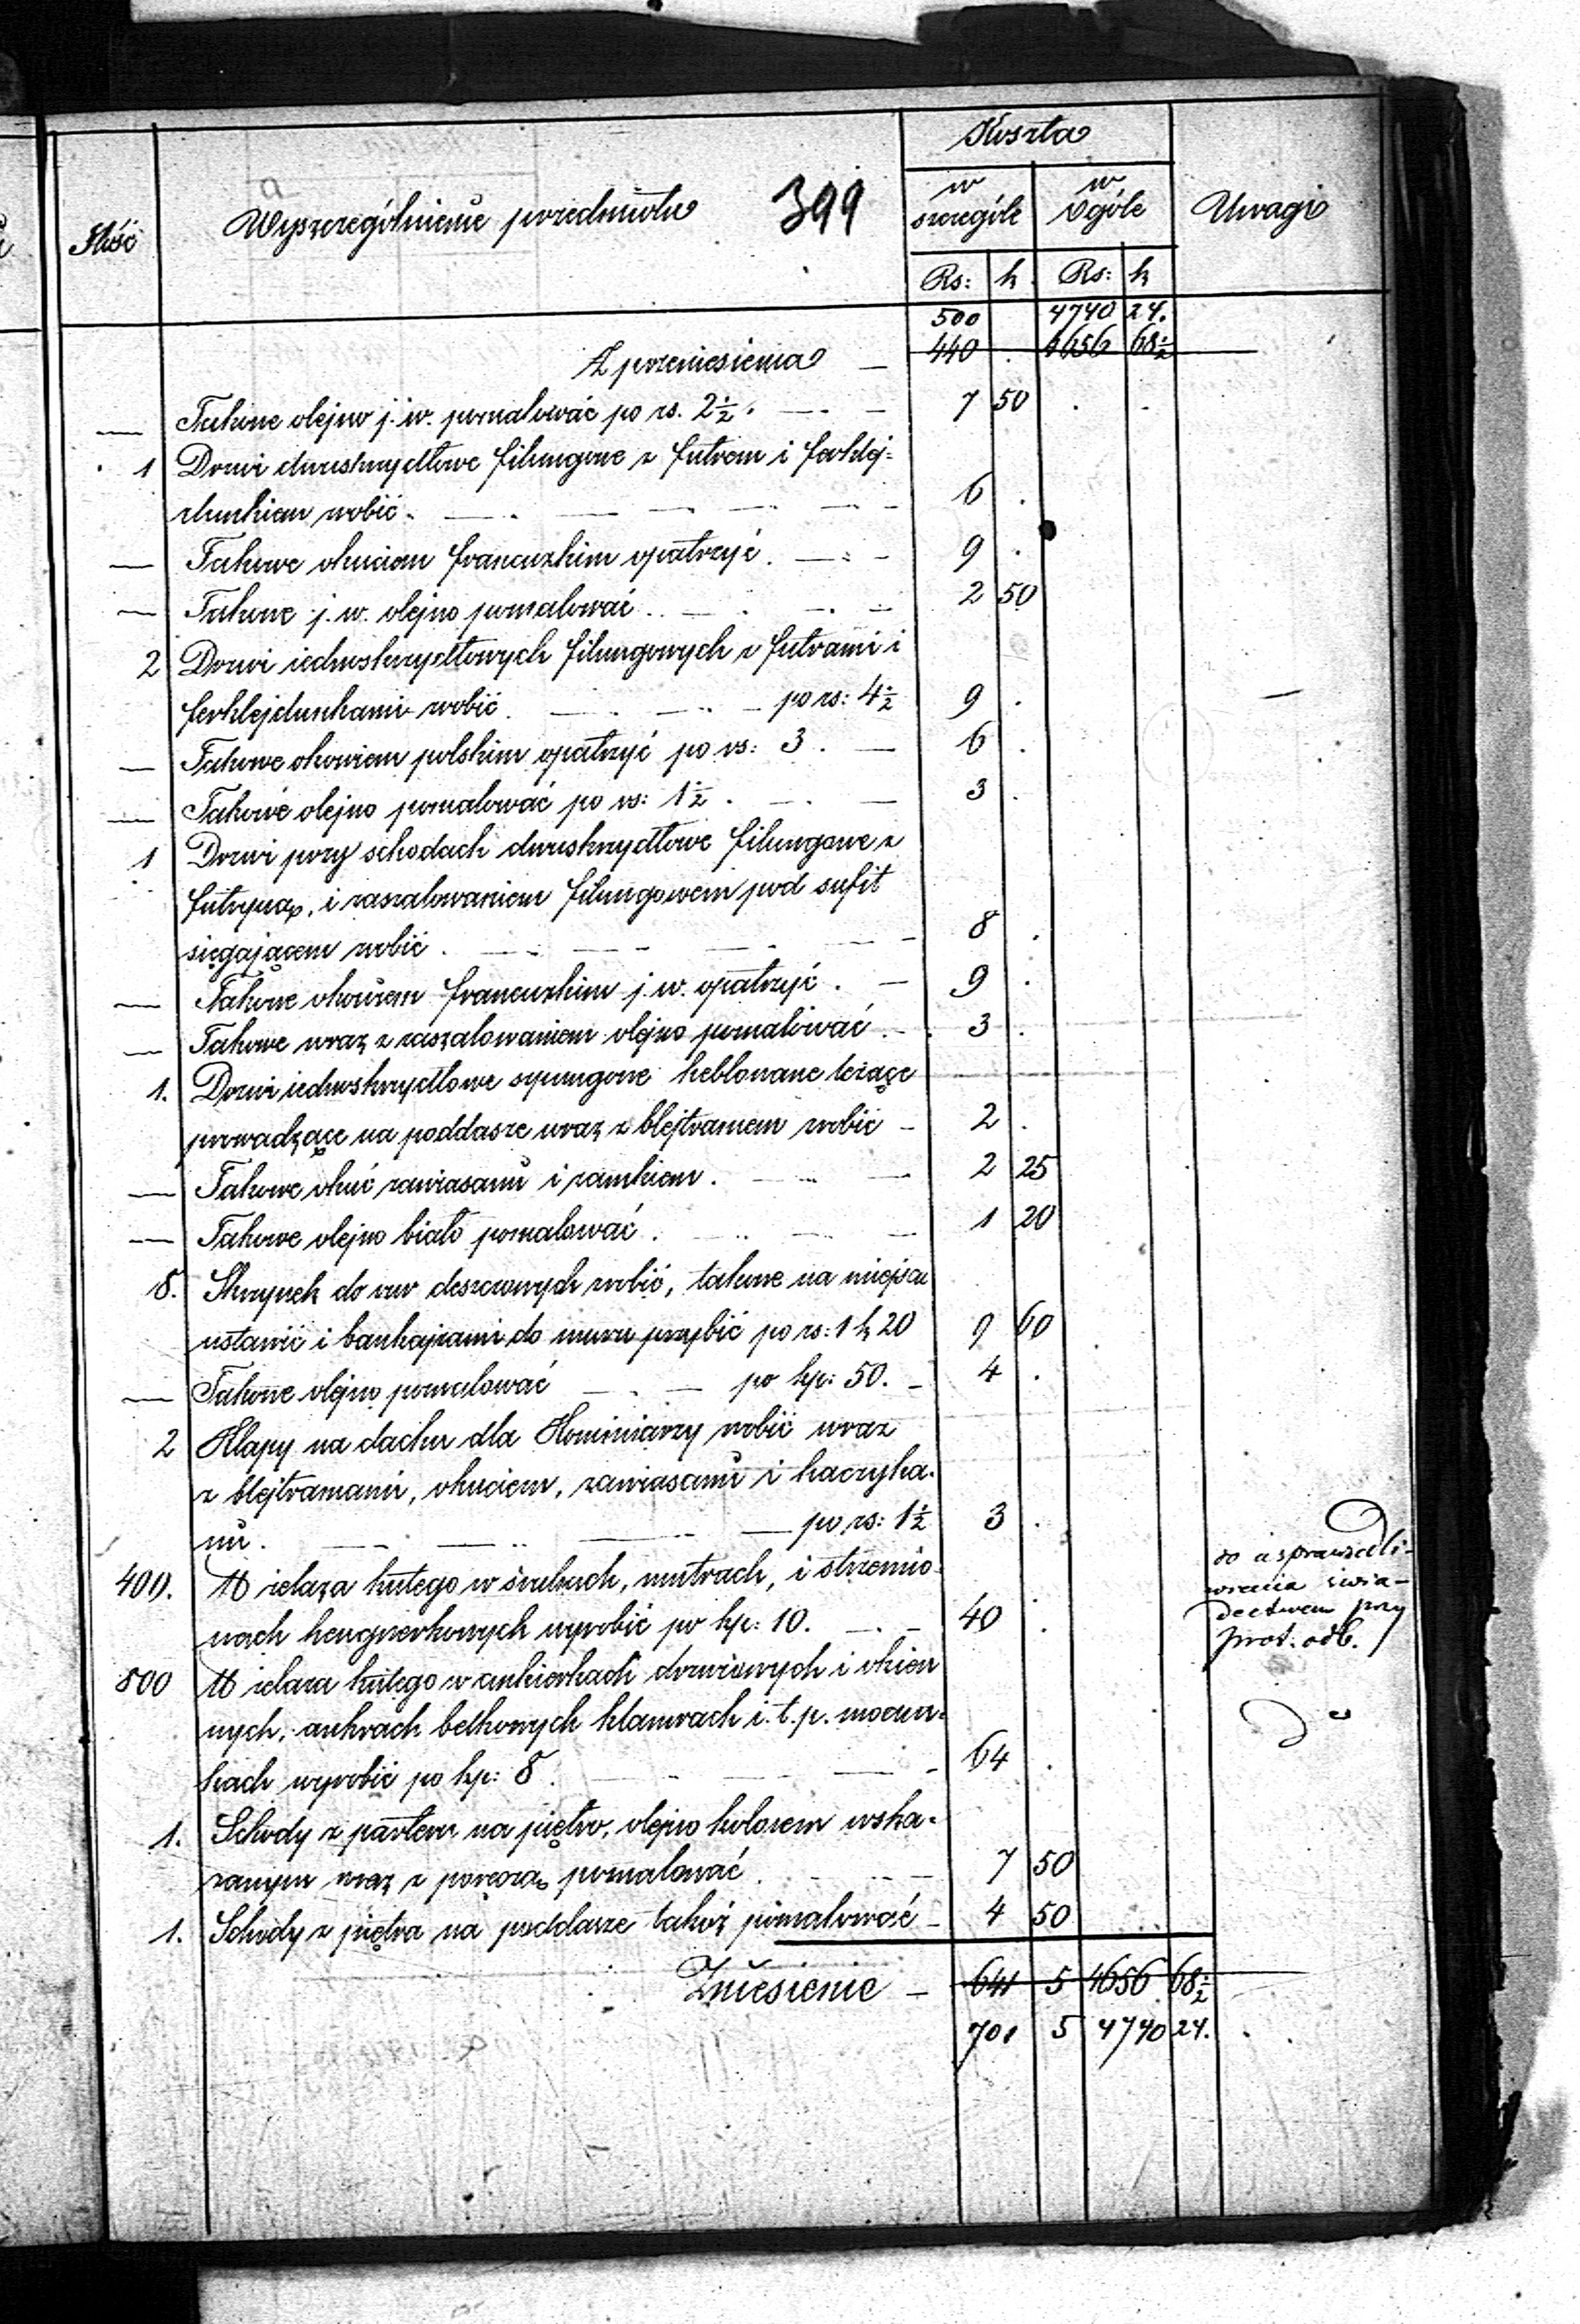 Koszta
Ilość Wyszczególnienie przedmiotu 399 w szczególe w ogóle Uwagi
Rs: k Rs: k
500 4740 24.
Z przeniesienia 440 . 4656 68 1/2
— Takowe olejno j. w. pomalować po rs. 2 1/2. 7 50
1 Drzwi dwuskrzydłowe filungowe z futrem i ferklej-
dunkiem zrobić. 6 .
— Takowe okuciem francuzkim opatrzyć. 9 .
— Takowe j. w. olejno pomalować. 2 50
2 Drzwi iednoskrzydłowych filungowych z futrami i
ferklejdunkami zrobić. po rs: 4 1/2 9 .
— Takowe okowiem polskim opatrzyć po rs: 3. 6 .
— Takowe olejno pomalować po rs: 1 1/2. 3 .
1 Drzwi przy schodach dwuskrzydłowe filungowe z
futryną, i zaszalowaniem filungowem pod sufit
sięgającem zrobić. 8 .
— Takowe okowiem francuzkim j. w. opatrzyć. 9 .
— Takowe wraz z zaszalowaniem olejno pomalować. 3 .
1. Drzwi iednoskrzydłowe szpungowe heblowane leżące
prowadzące na poddasze wraz z blejtramem zrobić 2 .
— Takowe okuć zawiasami i zamkiem. 2 25
— Takowe olejno biało pomalować. 1 20
8. Skrzynek do rur deszczowych zrobić, takowe na miejscu
ustawić i bankajzami do muru przybić po rs: 1 k 20 9 60
— Takowe olejno pomalować po kp: 50. 4 .
2 Klapy na dachu dla Kominiarzy zrobić wraz
z blejtramami, okuciem, zawiasami i haczyka-
mi. po rs: 1 1/2 3 .
400. ℔ żelaza kutego w śrubach, mutrach, i strzemio-
nach hengwerkowych wyrobić po kp: 10. 40 .
do usprawiedli-
wienia świa-
dectwem przy
prot. odb.
800 ℔ żelaza kutego w ankierkach drzwiowych i okien
nych, ankrach belkowych klamrach i. t. p. mocun-
kach wyrobić po kp: 8. 64 .
1. Schody z parteru na piętro, olejno kolorem wska-
zanym wraz z poręczą pomalować. 7 50
1. Schody z piętra na poddasze takoż pomalować 4 50
Zniesienie 641 5 4656 68 1/2
701 5 4740 24.